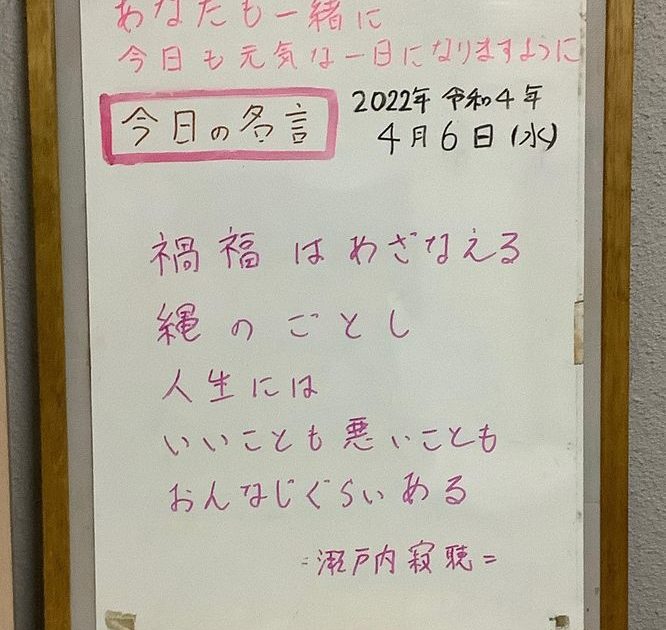 あなたも一緒に
今日も元気な一日になりますように
今日の名言
2022年 令和4年
4月6日(水)
禍福はわざなえる
縄のごとし
人生には
いいことも悪いことも
おんなじぐらいある
=瀬戸内寂聴=